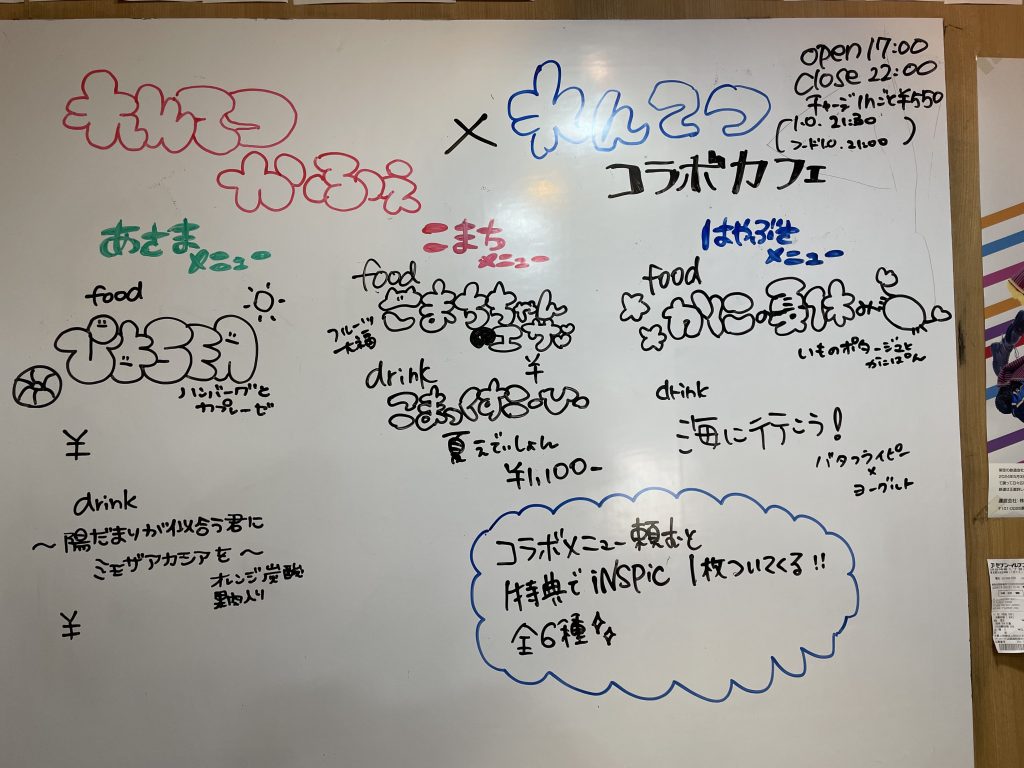 れんてつ
かふぇ
×
れんてつ
コラボカフェ
open 17:00
close 22:00
チャージ1hごと¥550
(l.o. 21:30
フードl.o. 21:00)
あさま
メニュー
food
ハンバーグと
カプレーゼ
¥
drink
～陽だまりが似合う君に
ミモザアカシアを～
オレンジ炭酸
果肉入り
¥
こまち
メニュー
food
こまちちゃん
フルーツ
大福
¥
drink
こまっくすこーひー
夏えでぃしょん
¥1,100-
はやぶさ
メニュー
food
いものポタージュと
かにぱん
drink
海に行こう!
バタフライピー
×
ヨーグルト
コラボメニュー頼むと
1特典で iNSPiC 1枚ついてくる!!
全6種